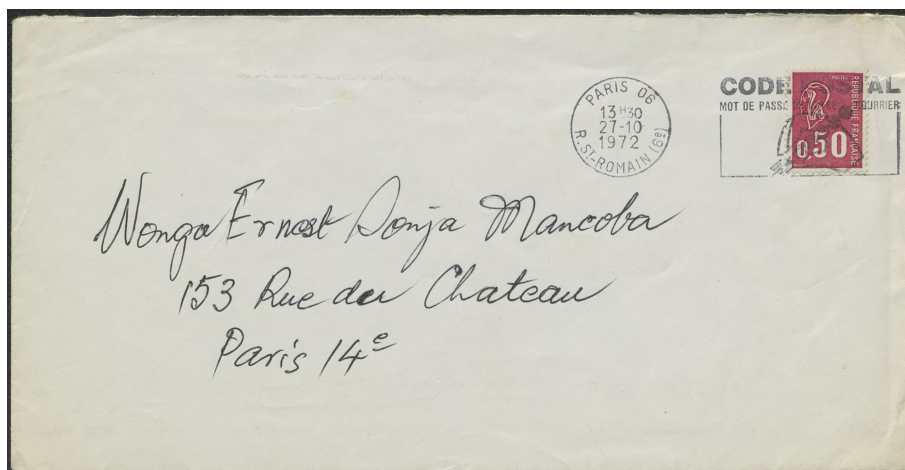 PARIS 06
13H30
27-10
1972
R. ST-ROMAIN (6e)
CODE POSTAL
MOT DE PASSE COURRIER
REPUBLIQUE FRANÇAISE
0,50
Wonga Ernest Sonja Mancoba
153 Rue du Chateau
Paris 14e